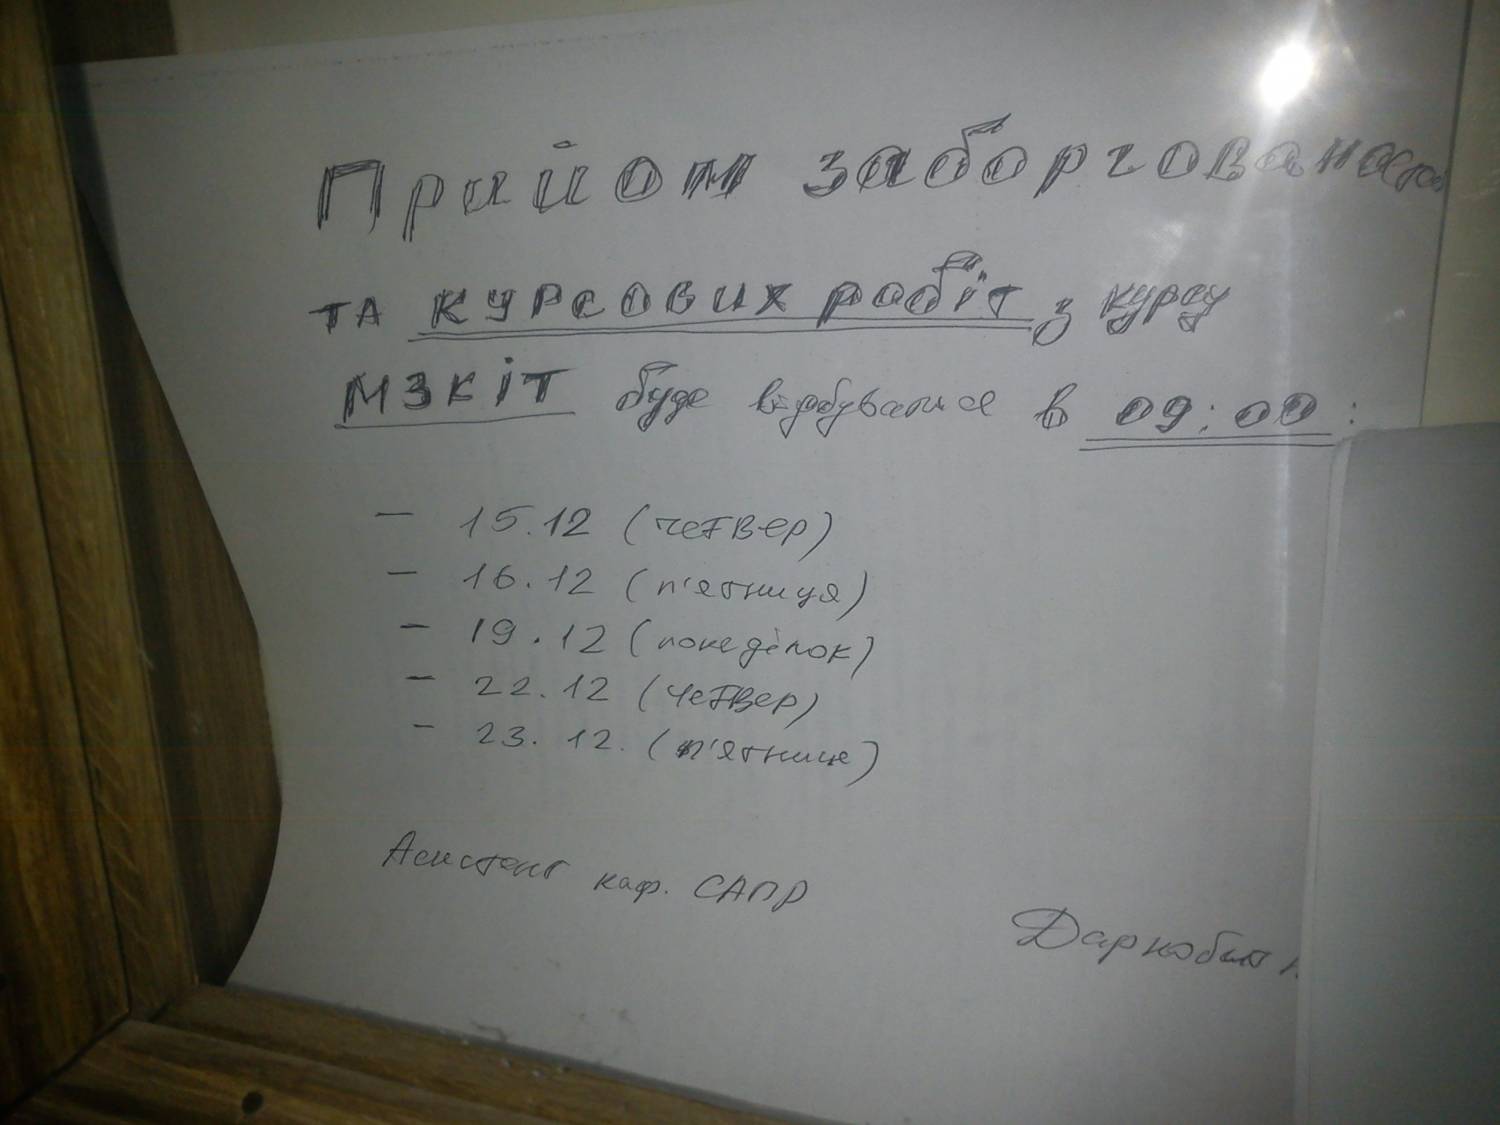 Прийом заборгованостей
та курсових робіт з курсу
МЗКІТ буде відбуватися в 09:00:
— 15.12 (четвер)
— 16.12 (п'ятниця)
— 19.12 (понеділок)
— 22.12 (четвер)
- 23.12. (п'ятниця)
Асистент каф. САПР